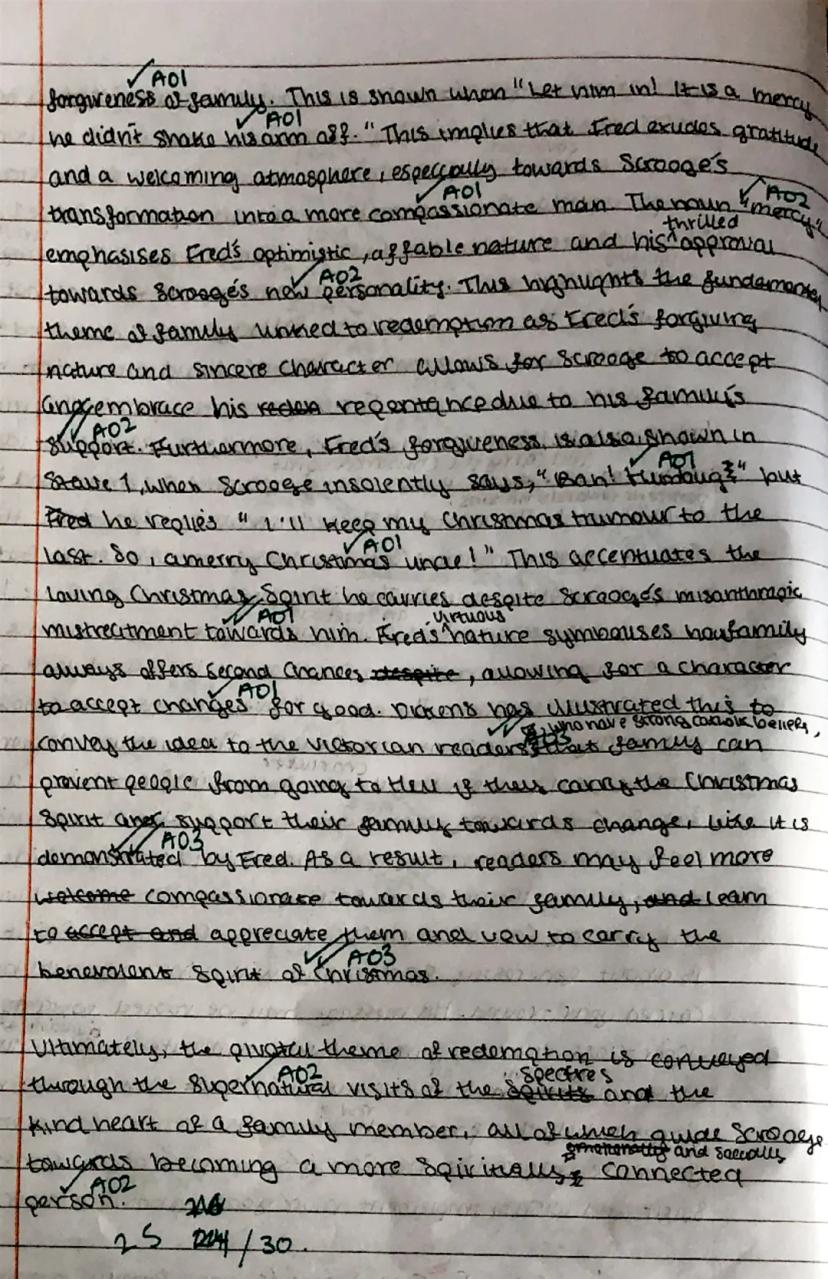 ✓ AO1
forgiveness of family. This is shown when "Let him in! It is a mercy
✓ AO1
he didn't shake his arm off." This implies that Fred exudes gratitude
and a welcoming atmosphere, especially towards Scrooge's
✓ AO1 ✓ AO2
transformation into a more compassionate man. The noun "mercy"
thrilled
emphasises Fred's optimistic, affable nature and his ^ approval
✓ AO2
towards Scrooge's new personality. This highlights the fundamental
theme of family linked to redemption as Fred's forgiving
nature and sincere character allows for Scrooge to accept
and embrace his repentance due to his family's
✓✓ AO2
support. Furthermore, Fred's forgiveness is also shown in
✓ AO1
Stave 1, when Scrooge insolently says, "Bah! Humbug!" but
Fred he replies "I'll keep my Christmas humour to the
✓ AO1
last. So, a merry Christmas uncle!" This accentuates the
loving Christmas Spirit he carries despite Scrooge's misanthropic
✓✓ AO1 virtuous
mistreatment towards him. Fred's ^ nature symbolises how family
always offers second chances despite, allowing for a character
✓ AO1
to accept changes for good. Dickens has illustrated this to
✓✓ who have strong catholic beliefs,
convey the idea to the Victorian readers that family can
prevent people from going to Hell if they carry the Christmas
Spirit and support their family towards change, like it is
✓✓ AO3
demonstrated by Fred. As a result, readers may feel more
welcome compassionate towards their family, and learn
to accept and appreciate them and vow to carry the
✓✓ AO3
benevolent Spirit of Christmas.
Ultimately, the pivotal theme of redemption is conveyed
✓ AO2 spectres
through the supernatural visits of the spirits and the
kind heart of a family member, all of which guide Scrooge
emotionally and socially
towards becoming a more spiritually connected
✓ AO2
person.
25 /30.